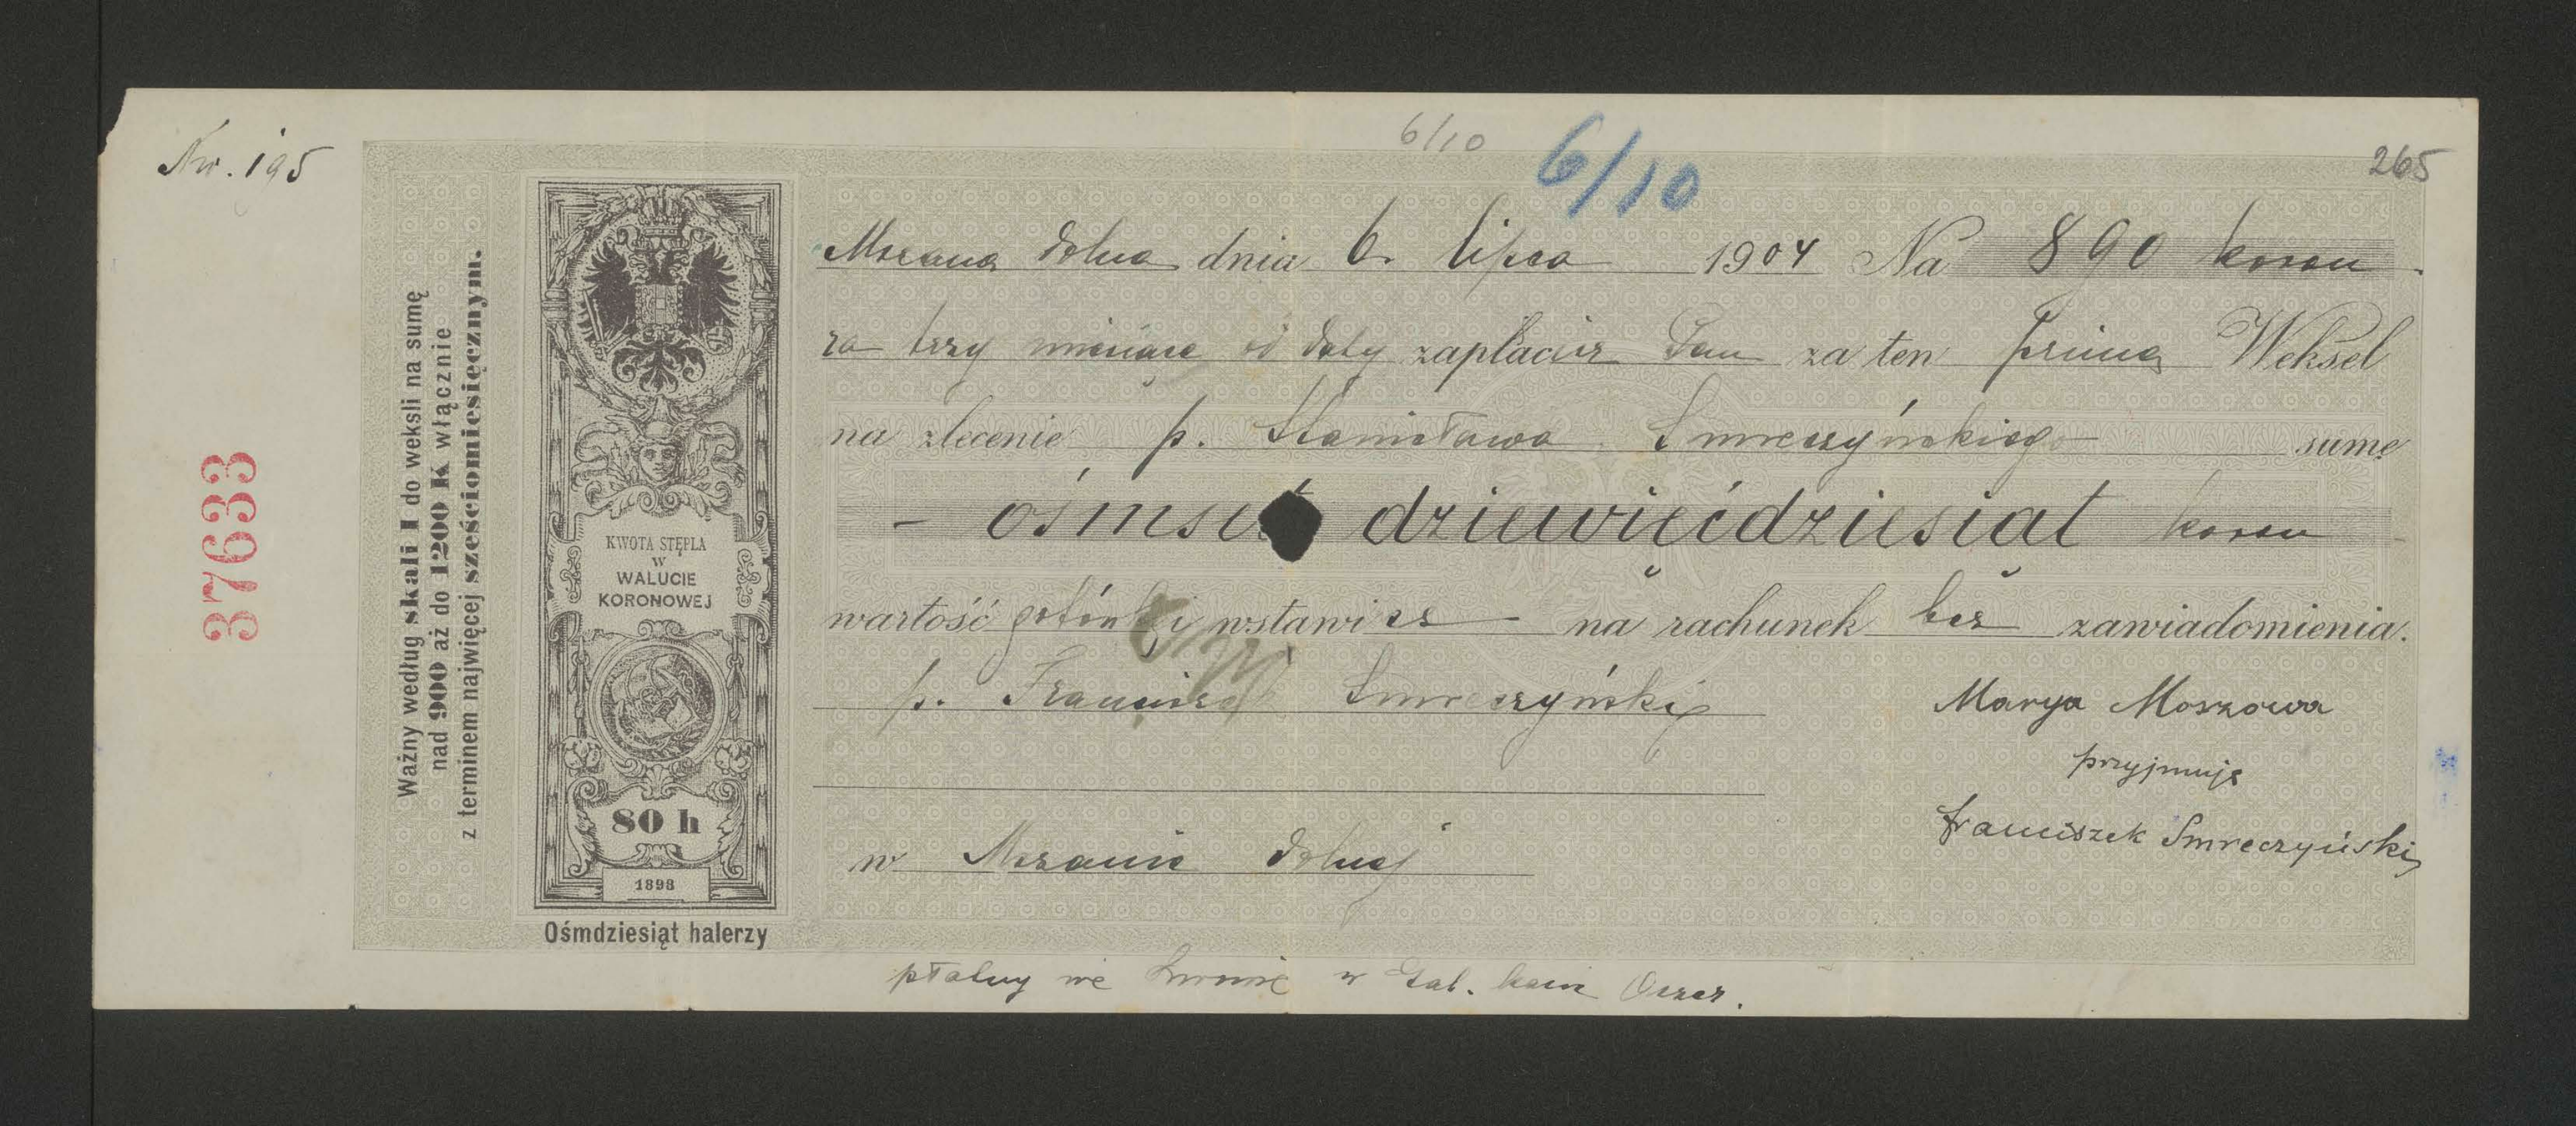 Nr. 195
6/10
6/10
265
37633
Ważny według skali I do weksli na sumę
nad 900 aż do 1200 K włącznie
z terminem najwięcej sześciomiesięcznym.
KWOTA STĘPLA
W
WALUCIE
KORONOWEJ
80 h
1898
Ośmdziesiąt halerzy
Mszana dolna dnia 6. lipca 1904 Na 890 koron
za trzy miesiące od daty zapłacisz Pan za ten prima Weksel
na zlecenie p. Stanisława Smreczyńskiego sumę
- ośmset dziewięćdziesiąt koron
wartość gotówką i wstawisz na rachunek bez zawiadomienia.
p. Franciszek Smreczyński
Marya Moszowa
przyjmuję
Franciszek Smreczyński
w Mszanie dolnej
płatny we Lwowie w Gal. kasie